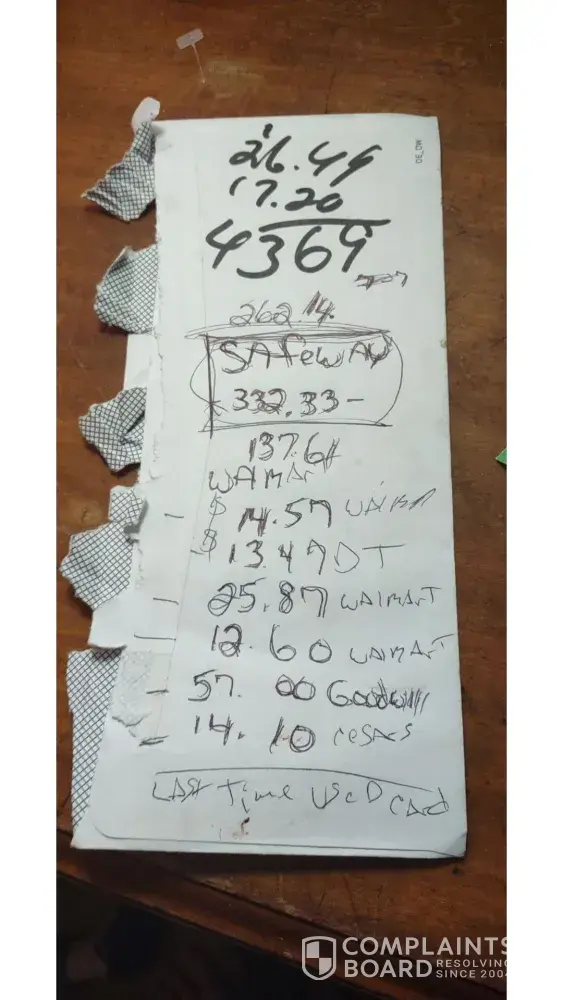 DE_OW
26.49
17.20
4369
262.14
SAfewAy
332.33-
137.61
WAlMArT
$ 14.57
$ 13.47 DT
25.87 WAlMArT
12.60 WAlMArT
57.00 Goodwill
14.10
LASt Time UseD CArd
COMPLAINTS
BOARD RESOLVING
SINCE 2004